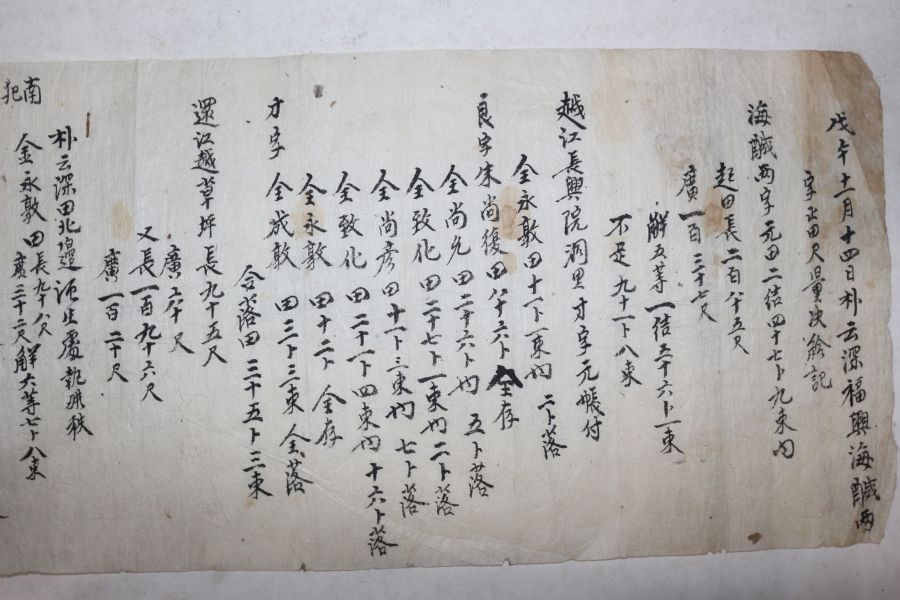 戊午十二月十四日朴云深福興海醎两
字正田尺量次繪記
海醎两字元田二結四十七卜九束內
起田長二百八十五尺
廣一百三十七尺
解五等一結五十六卜一束
不足九十一卜八束
越江長興院洞里寸字元帳付
金永敦田十一卜一束內 二卜落
良字朱尚復田八十六卜 全存
金尚允田二十六卜內 五卜落
金致化田二十七卜一束內 二卜落
金尚彦田十一卜三束內 七卜落
金致化田二十一卜四束內十六卜落
金永敦田十二卜 全存
寸字 金成敦田三卜三束 全落
合落田三十五卜三束
還江越草坪長九十五尺
廣五十尺
又長一百九十六尺
廣一百二十尺
朴云深田北邊 生處執 秩
金永敦田長九十八尺廣三十二尺解六等七卜八束
南犯